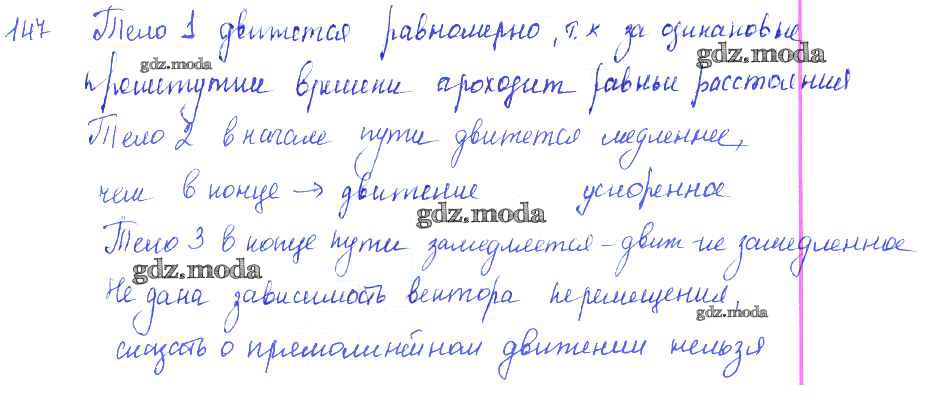 147 Тело 1 движется равномерно, т.к за одинаковые
промежутки времени проходит равные расстояния
Тело 2 в начале пути движется медленнее,
чем в конце → движение ускоренное
Тело 3 в конце пути замедляется - движ-ие замедленное
Не дана зависимость вектора перемещения,
сказать о прямолинейном движении нельзя
gdz.moda
gdz.moda
gdz.moda
gdz.moda
gdz.moda